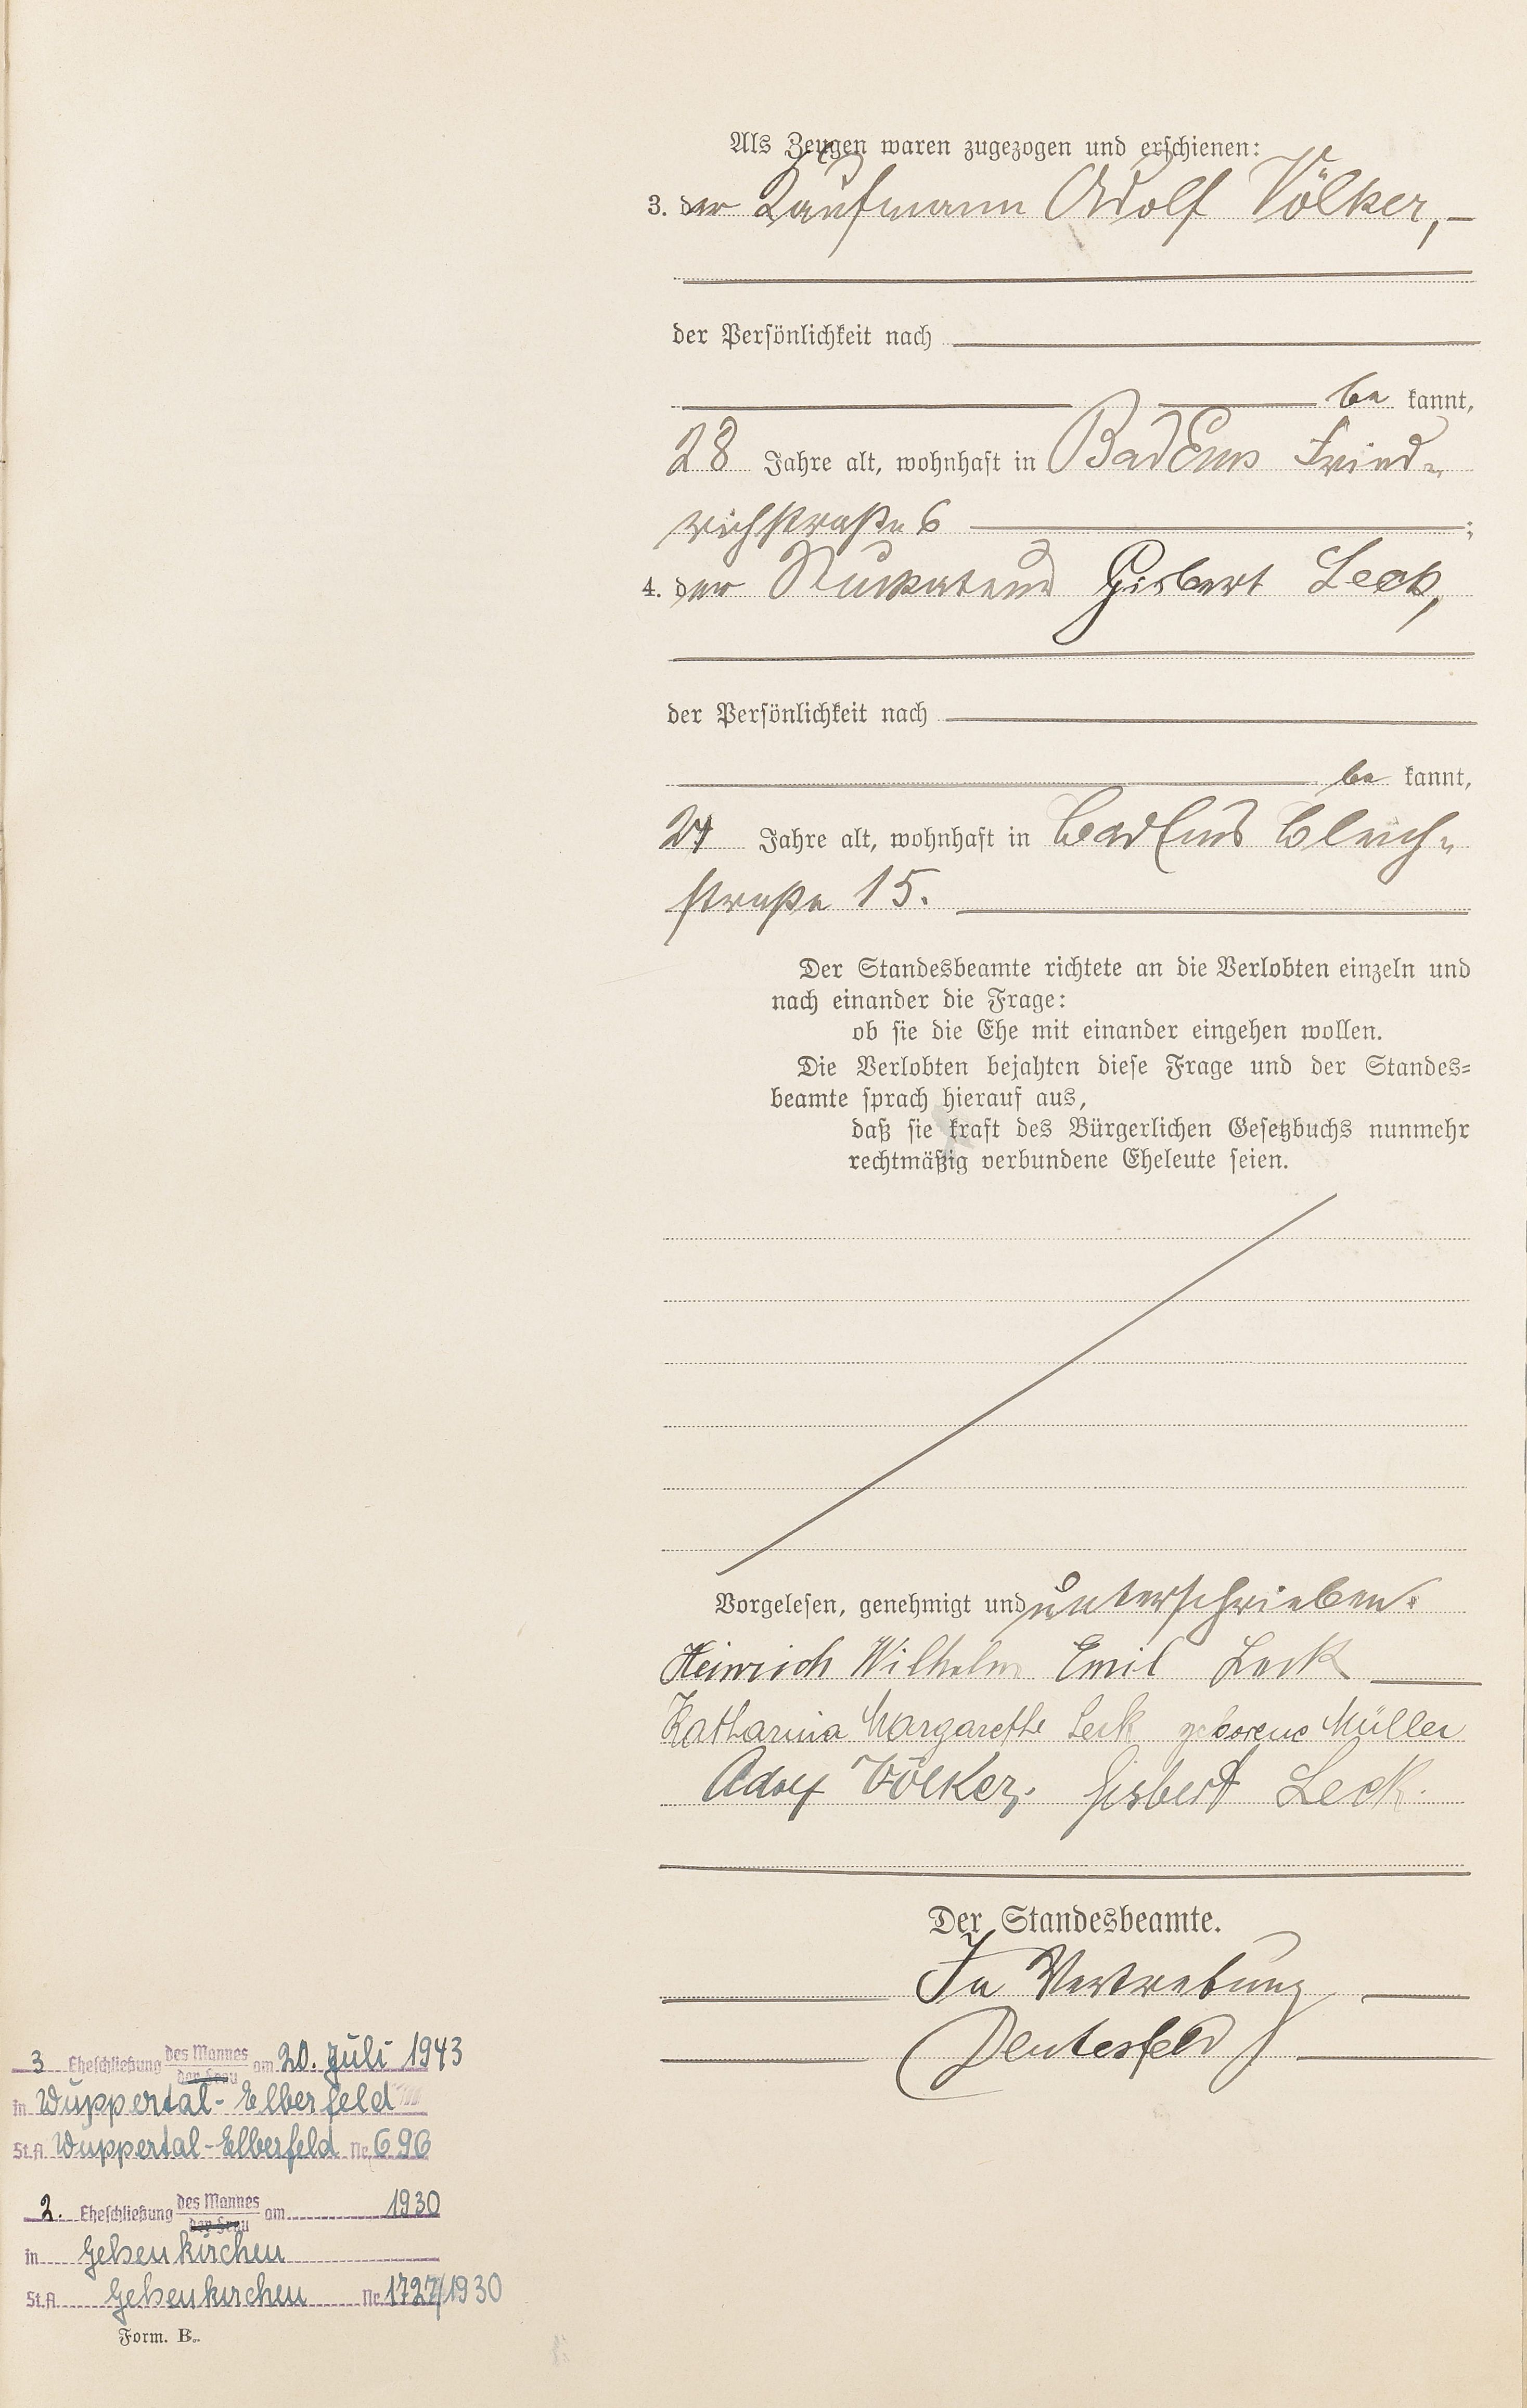 Als Zeugen waren zugezogen und erschienen:
3. der Kaufmann Adolf Völker,
der Persönlichkeit nach
be kannt,
28 Jahre alt, wohnhaft in Bad Ems Fried-
richstraße 6 ;
4. der Gisbert Leck,
der Persönlichkeit nach
be kannt,
Jahre alt, wohnhaft in Bad Ems Bleich-
straße 15.
Der Standesbeamte richtete an die Verlobten einzeln und
nach einander die Frage:
ob sie die Ehe mit einander eingehen wollen.
Die Verlobten bejahten diese Frage und der Standes-
beamte sprach hierauf aus,
daß sie kraft des Bürgerlichen Gesetzbuchs nunmehr
rechtmäßig verbundene Eheleute seien.
Vorgelesen, genehmigt und unterschrieben.
Heinrich Wilhelm Emil Leck
Katharina Margarethe Leck geborene Müller
Adolf Völker. Gisbert Leck.
Der Standesbeamte.
In Vertretung
3 Eheschließung des Mannes der Frau am 20. Juli 1943
in Wuppertal-Elberfeld
St.A. Wuppertal-Elberfeld Nr. 696
2. Eheschließung des Mannes der Frau am 1930
in Gelsenkirchen
St.A. Gelsenkirchen Nr. 1727/1930
Form. B.